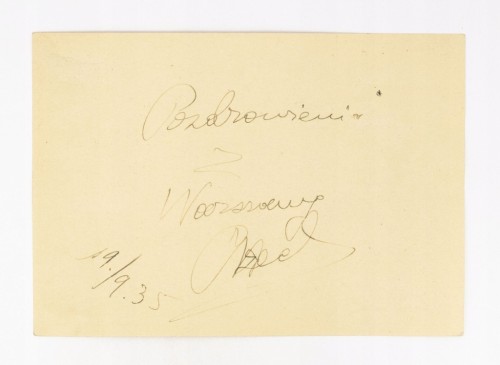 Pozdrowienia
z
Warszawy
19./9.35